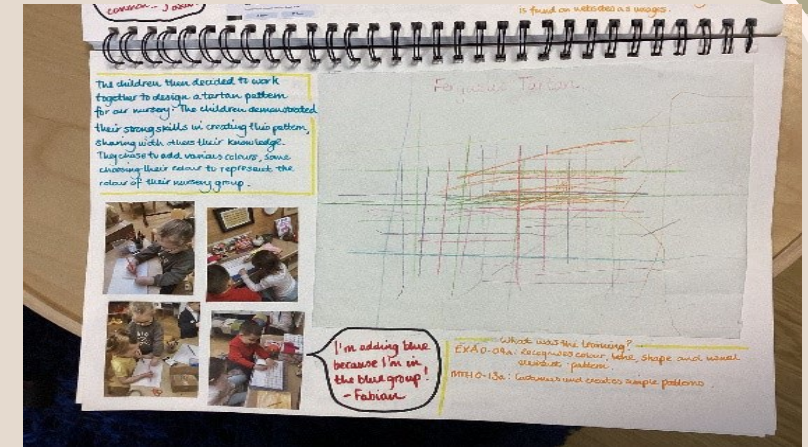 common - Josh
is found on websites as images.
The children then decided to work
together to design a tartan pattern
for our nursery. The children demonstrated
their strong skills in creating this pattern,
sharing with others their knowledge.
They chose to add various colours, some
choosing their colour to represent the
colour of their nursery group.
Tartan
I'm adding blue
because I'm in
the blue group!
- Fabian
What was the learning?
EXA 0-04a: Recognises colour, line, shape and
pattern.
MTH 0-13a: Continues and creates simple patterns